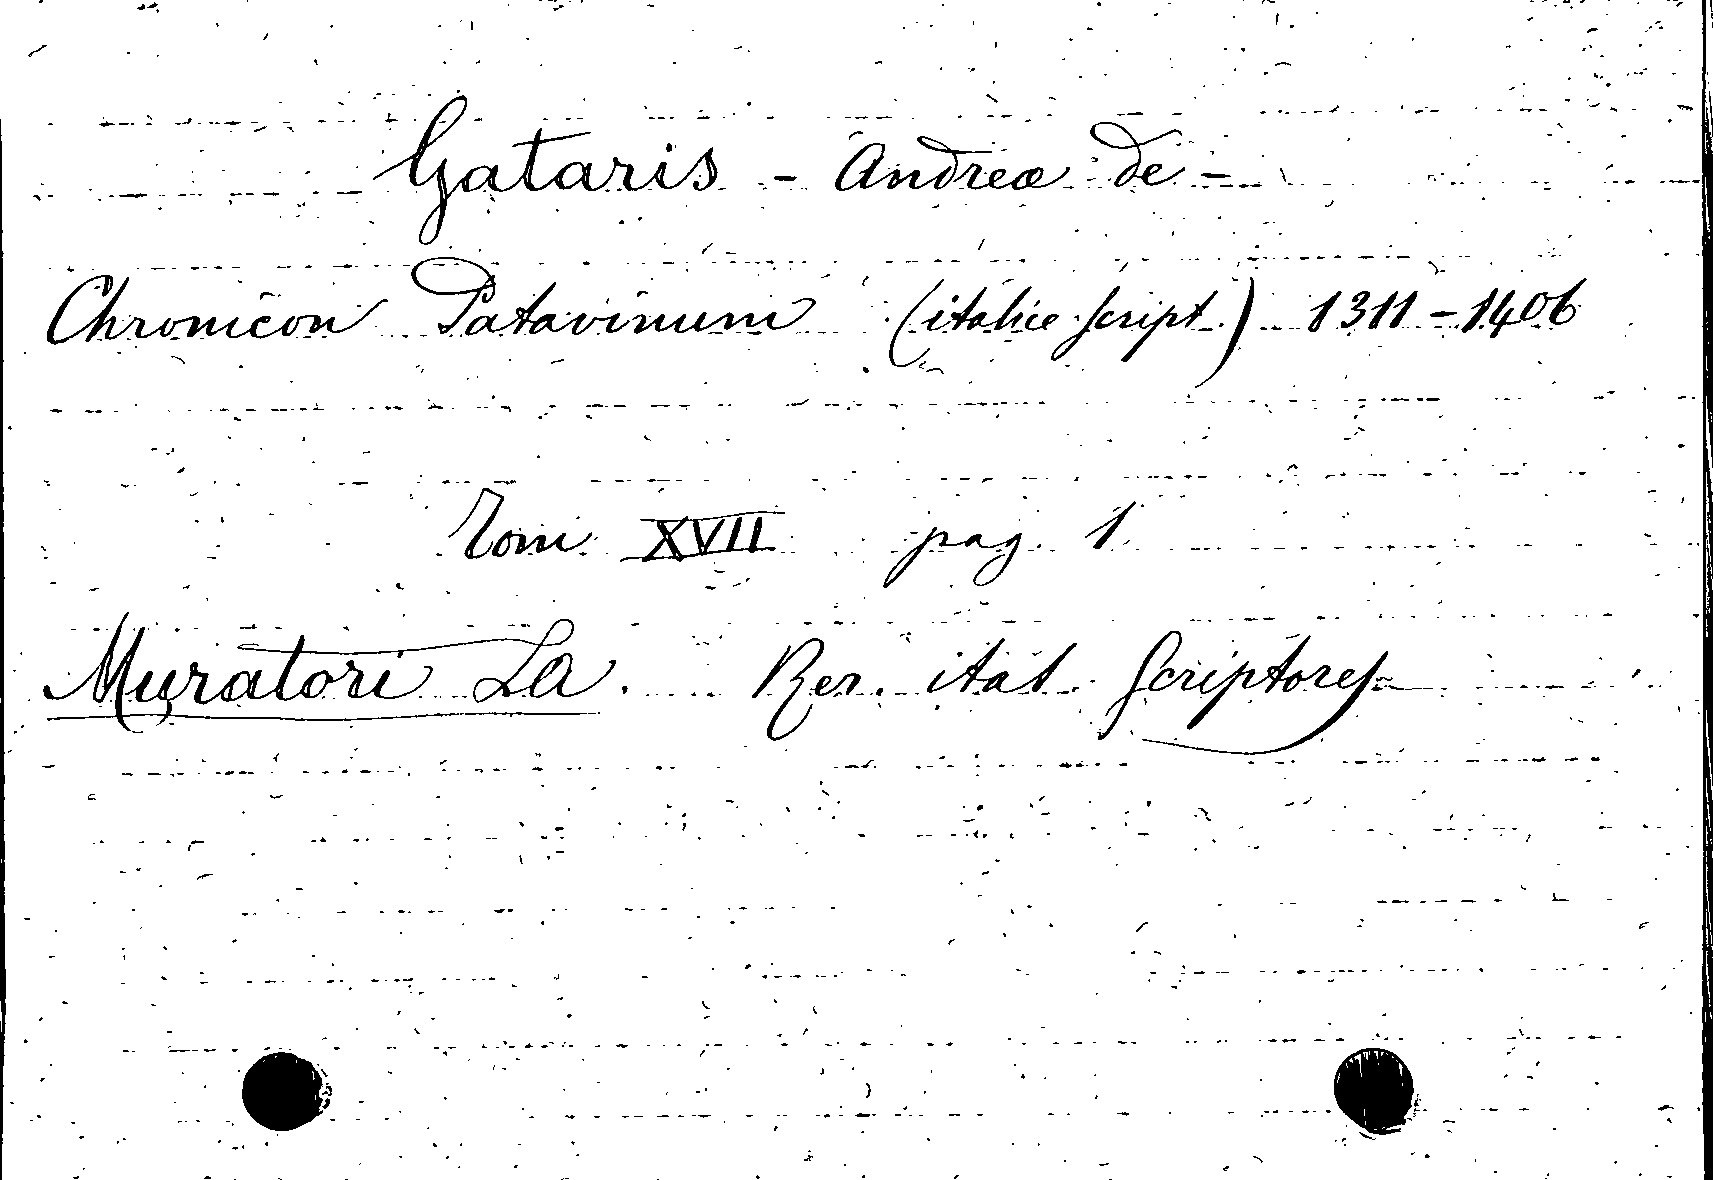 Gataris - Andreæ de -
Chronicon Patavinum (italice script.) 1311-1406
Tom. XVII pag. 1
Muratori LA. Rer. ital. Scriptores